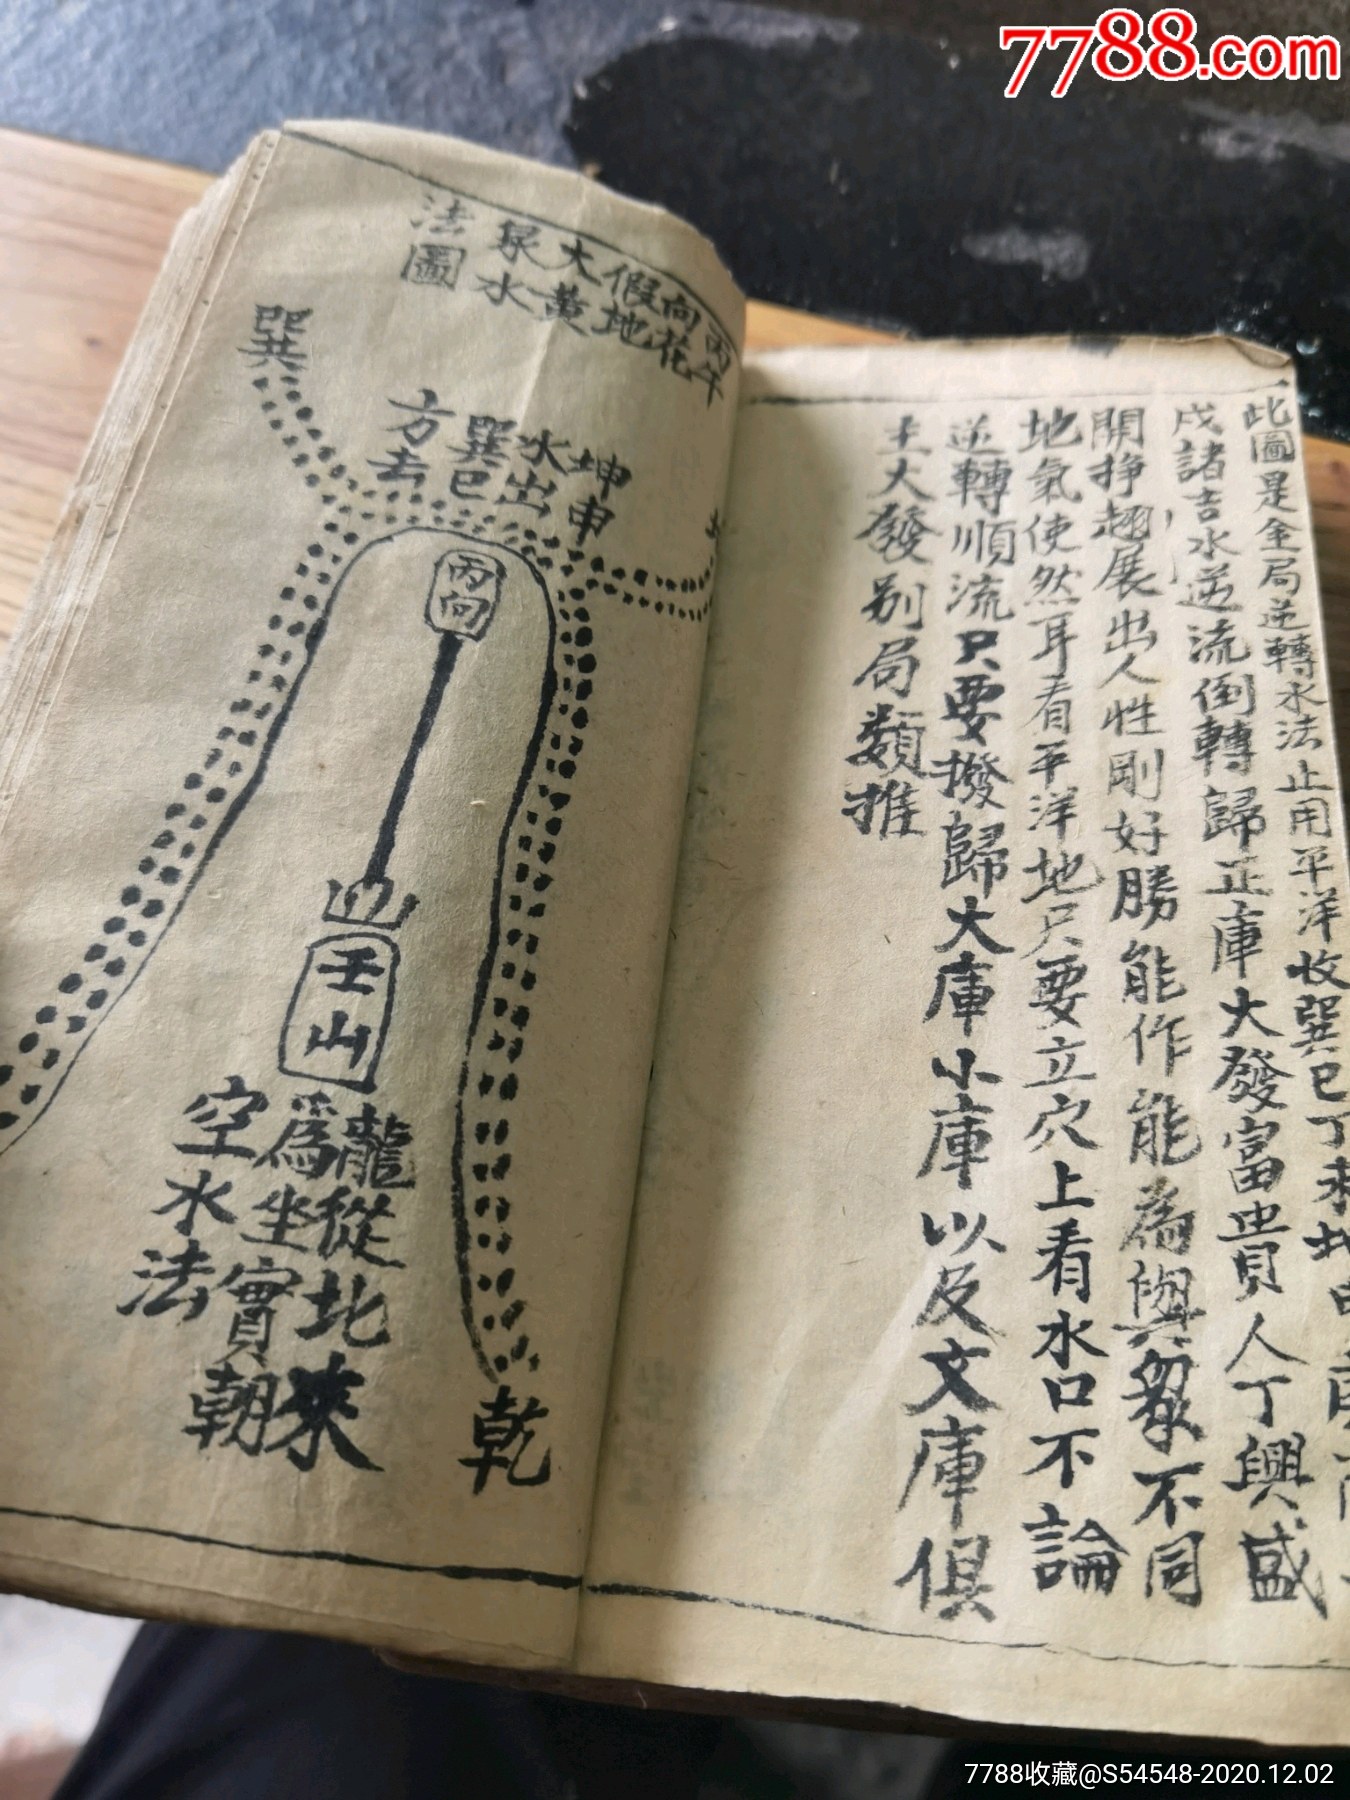 7788.com
此圖是金局逆轉水法止用平洋收巽巳丁未坤申
戌諸吉水逆流倒轉歸正庫大發富貴人丁興盛
開掙趐展出人性剛好勝能作能為與眾不同
地氣使然耳看平洋地只要立穴上看水口不論
逆轉順流只要撥歸大庫小庫以及文庫俱
主大發別局類推
丙午
向花
假地
大黃
泉水
法圖
坤申
水出
巽巳
方去
巽
丙向
壬山
龍從北來
為坐實朝
空水法
乾
7788收藏@S54548-2020.12.02